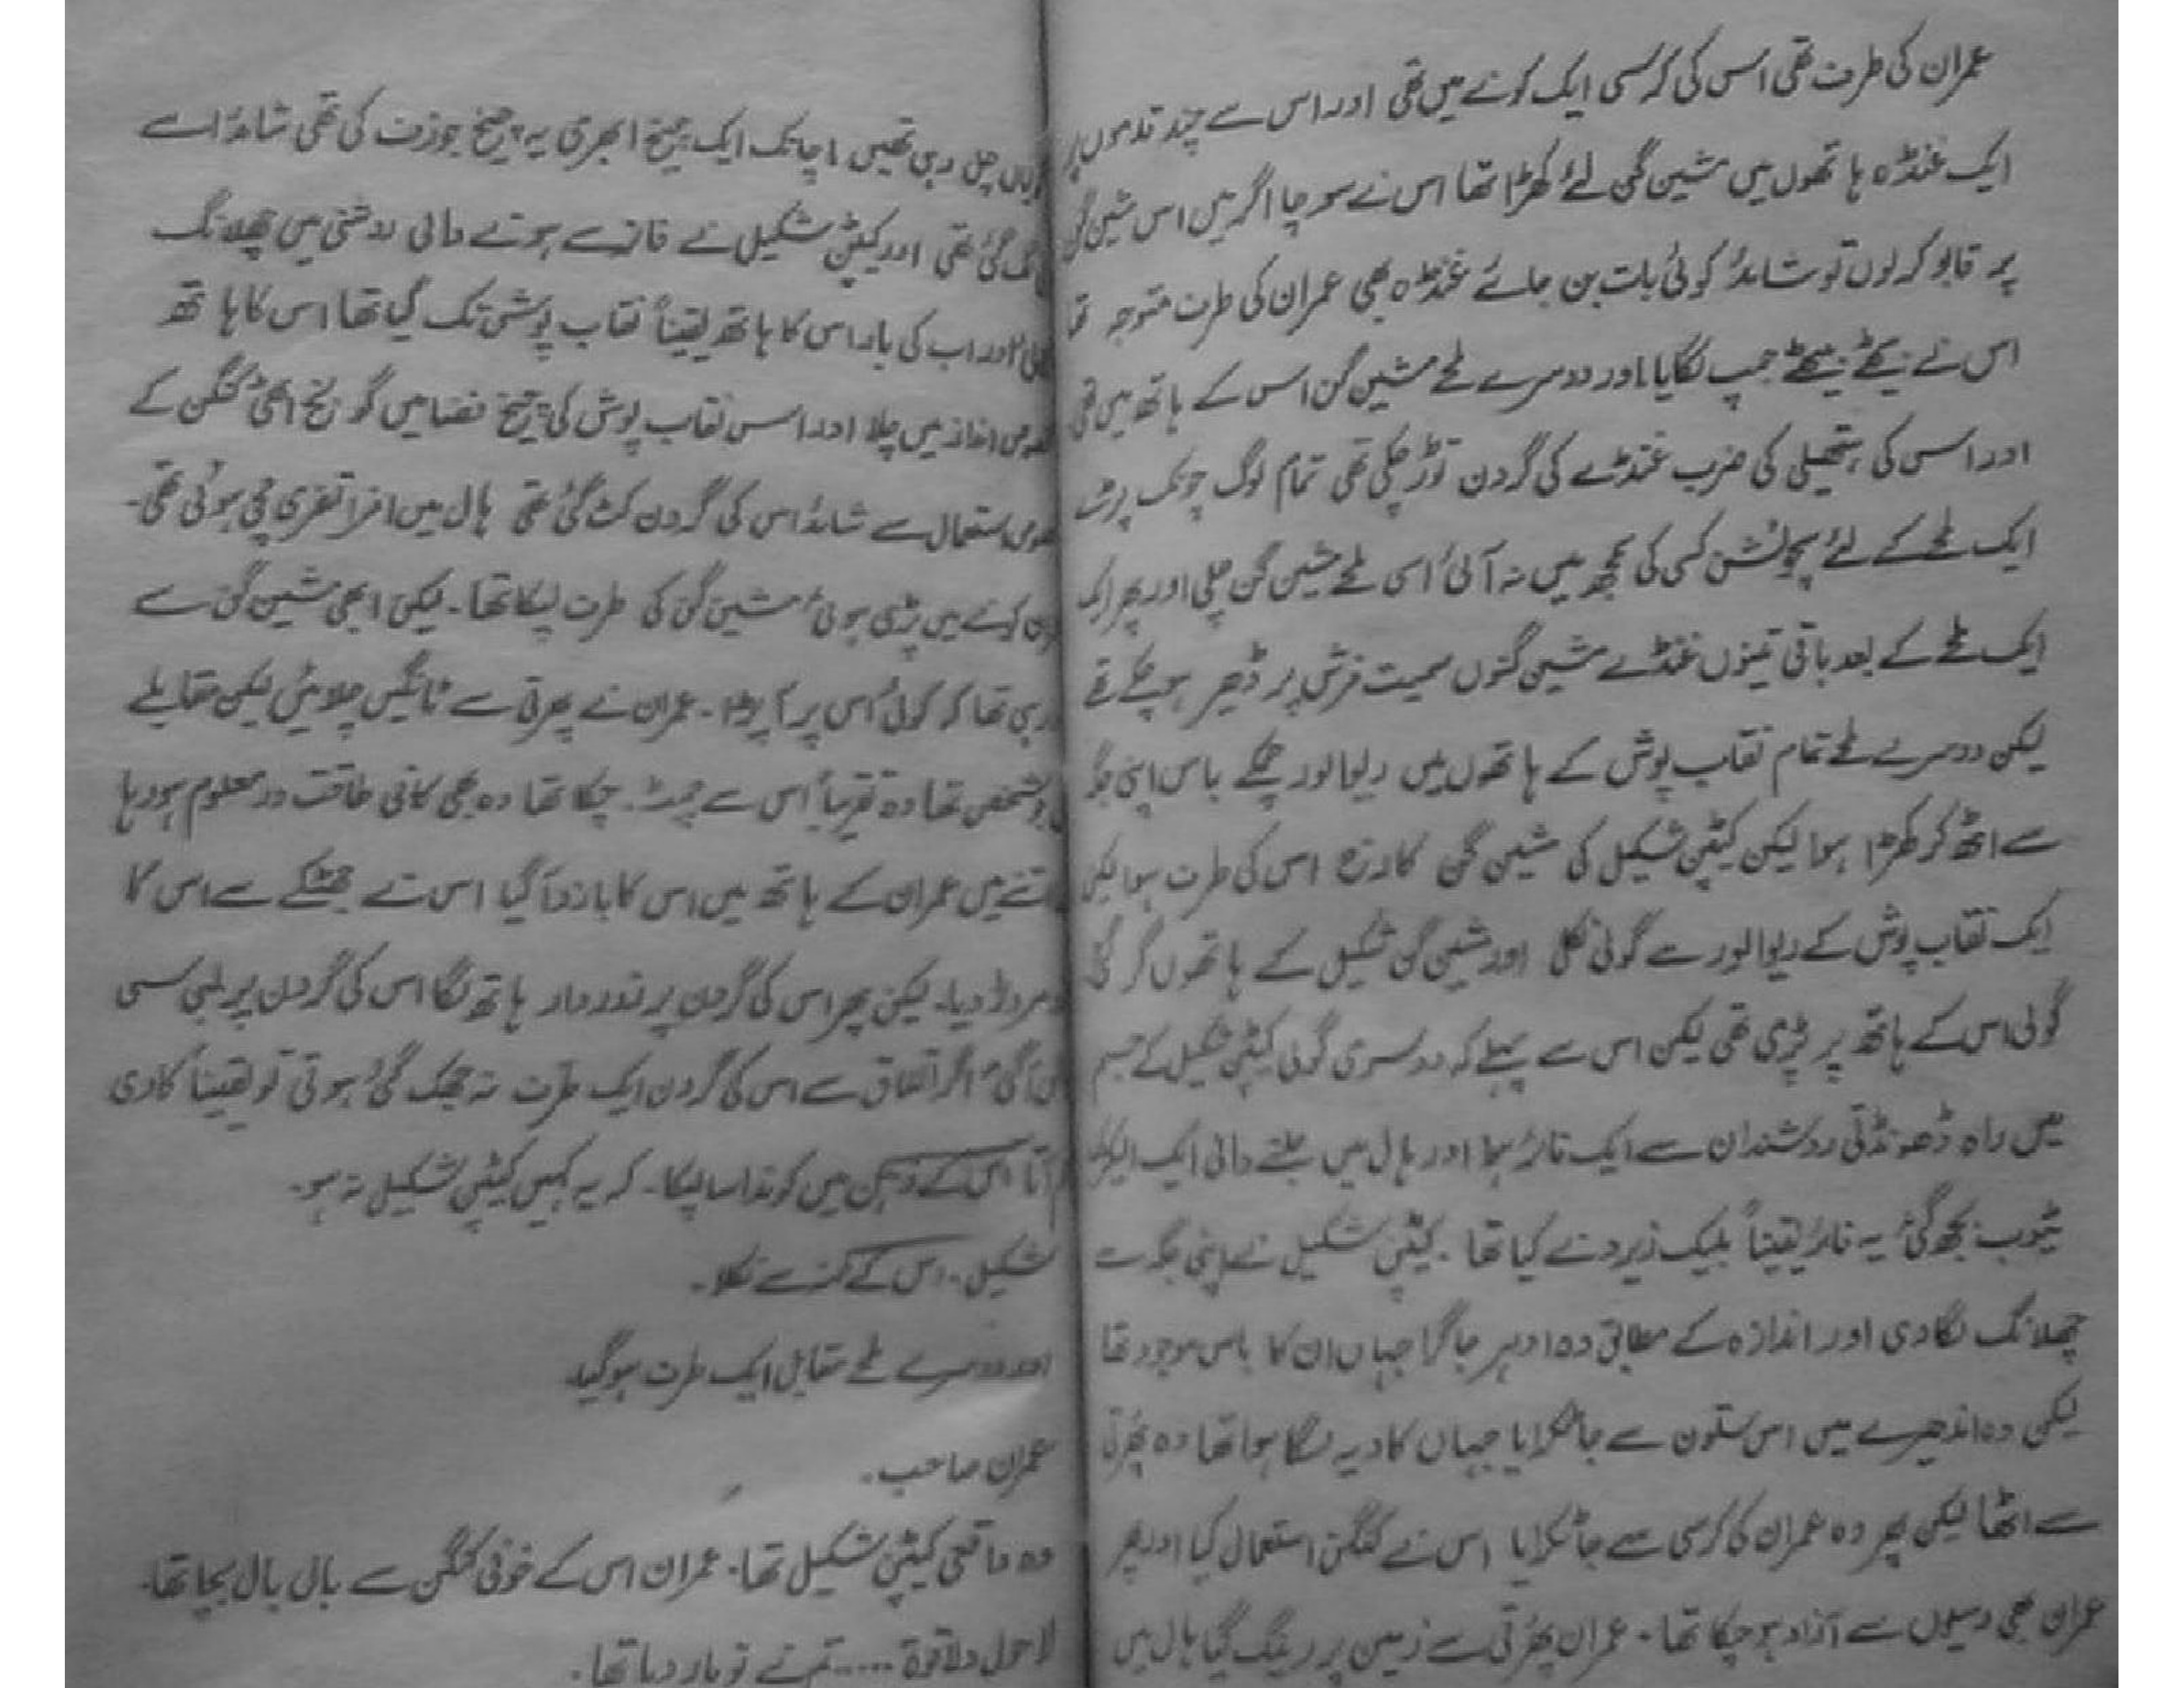 عمران کی طرف تھی اس کی کرسی ایک کونے میں تھی اور اس سے چند قدموں پر
ایک غنڈہ ہاتھوں میں مشین گن لئے کھڑا تھا اس نے سوچا اگر میں اس مشین گن
پر قابو کر لوں تو شائد کوئی بات بن جائے غنڈہ بھی عمران کی طرف متوجہ تھا
اس نے بیٹھے بیٹھے جمپ لگایا اور دوسرے لمحے مشین گن اس کے ہاتھ میں تھی
اور اس کی ہتھیلی کی ضرب غنڈے کی گردن توڑ چکی تھی تمام لوگ چونک پڑے
ایک لمحے کے لئے پچوئشن کسی کی سمجھ میں نہ آئی اسی لمحے مشین گن چلی اور پھر ایک
ایک لمحے کے بعد باقی تینوں غنڈے مشین گنوں سمیت فرش پر ڈھیر ہو چکے تھے
لیکن دوسرے لمحے تمام نقاب پوش کے ہاتھوں میں ریوالور چمکے باس اپنی جگہ
سے اٹھ کر کھڑا ہوا لیکن کیپٹن شکیل کی مشین گن کا رخ اس کی طرف ہوا لیکن
ایک نقاب پوش کے ریوالور سے گولی نکلی اور مشین گن شکیل کے ہاتھوں گر گئی
گولی اس کے ہاتھ پر پڑی تھی لیکن اس سے پہلے کہ دوسری گولی کیپٹن شکیل کے جسم
میں راہ ڈھونڈتی روشندان سے ایک فائر ہوا اور ہال میں جلنے والی ایک الیکٹرک
ٹیوب بجھ گئی یہ فائر یقیناً بلیک زیرو نے کیا تھا۔ کیپٹن شکیل نے اپنی جگہ سے
چھلانگ لگا دی اور اندازہ کے مطابق وہ ادہر جا گرا جہاں ان کا باس موجود تھا
لیکن وہ اندھیرے میں اس ستون سے جا ٹکرایا جہاں کا دیہ لگا ہوا تھا وہ پھرتی
سے اٹھا لیکن پھر وہ عمران کی کرسی سے جا ٹکرایا اس نے کنگن استعمال کیا اور پھر
عمران بھی رسیوں سے آزاد ہو چکا تھا۔ عمران پھرتی سے زمین پر رینگ گیا ہال میں
چل رہی تھیں اچانک ایک چیخ ابھری یہ چیخ جوزف کی تھی شائد اسے
گئی تھی اور کیپٹن شکیل نے فائر سے ہونے والی روشنی میں چھلانگ
اور اب کی بار اس کا ہاتھ یقیناً نقاب پوش تک گیا تھا اس کا ہاتھ
انداز میں چلا اور اس نقاب پوش کی چیخ فضا میں گونج اٹھی کنگن کے
استعمال سے شائد اس کی گردن کٹ گئی تھی ہال میں افراتفری مچی ہوئی تھی۔
کونے میں پڑی ہوئی مشین گن کی طرف لپکا تھا۔ لیکن ابھی مشین گن سے
ہی تھا کہ کوئی اس پر آ پڑا۔ عمران نے پھرتی سے ٹانگیں چلائیں لیکن مقابلے
شخص تھا وہ تقریباً اس سے چمٹ چکا تھا وہ بھی کافی طاقت ور معلوم ہو رہا
اتنے میں عمران کے ہاتھ میں اس کا بازو آ گیا اس نے جھٹکے سے اس کا
مروڑ دیا۔ لیکن پھر اس کی گردن پر زور دار ہاتھ لگا اس کی گردن پر لمبی سی
گئی اگر اتفاق سے اس کی گردن ایک طرف نہ جھک گئی ہوتی تو یقیناً کاری
آتا اس کے ذہن میں کوندا سا لپکا۔ کہ یہ کہیں کیپٹن شکیل نہ ہو۔
شکیل۔ اس کے منہ سے نکلا۔
اور دوسرے لمحے مقابل ایک طرف ہو گیا۔
عمران صاحب۔
وہ واقعی کیپٹن شکیل تھا۔ عمران اس کے خونی کنگن سے بال بال بچا تھا۔
لاحول ولاقوۃ ..... تم نے تو مار دیا تھا۔